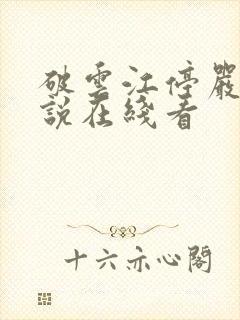 破雲江停嚴
說在綫看
十六亦心閣